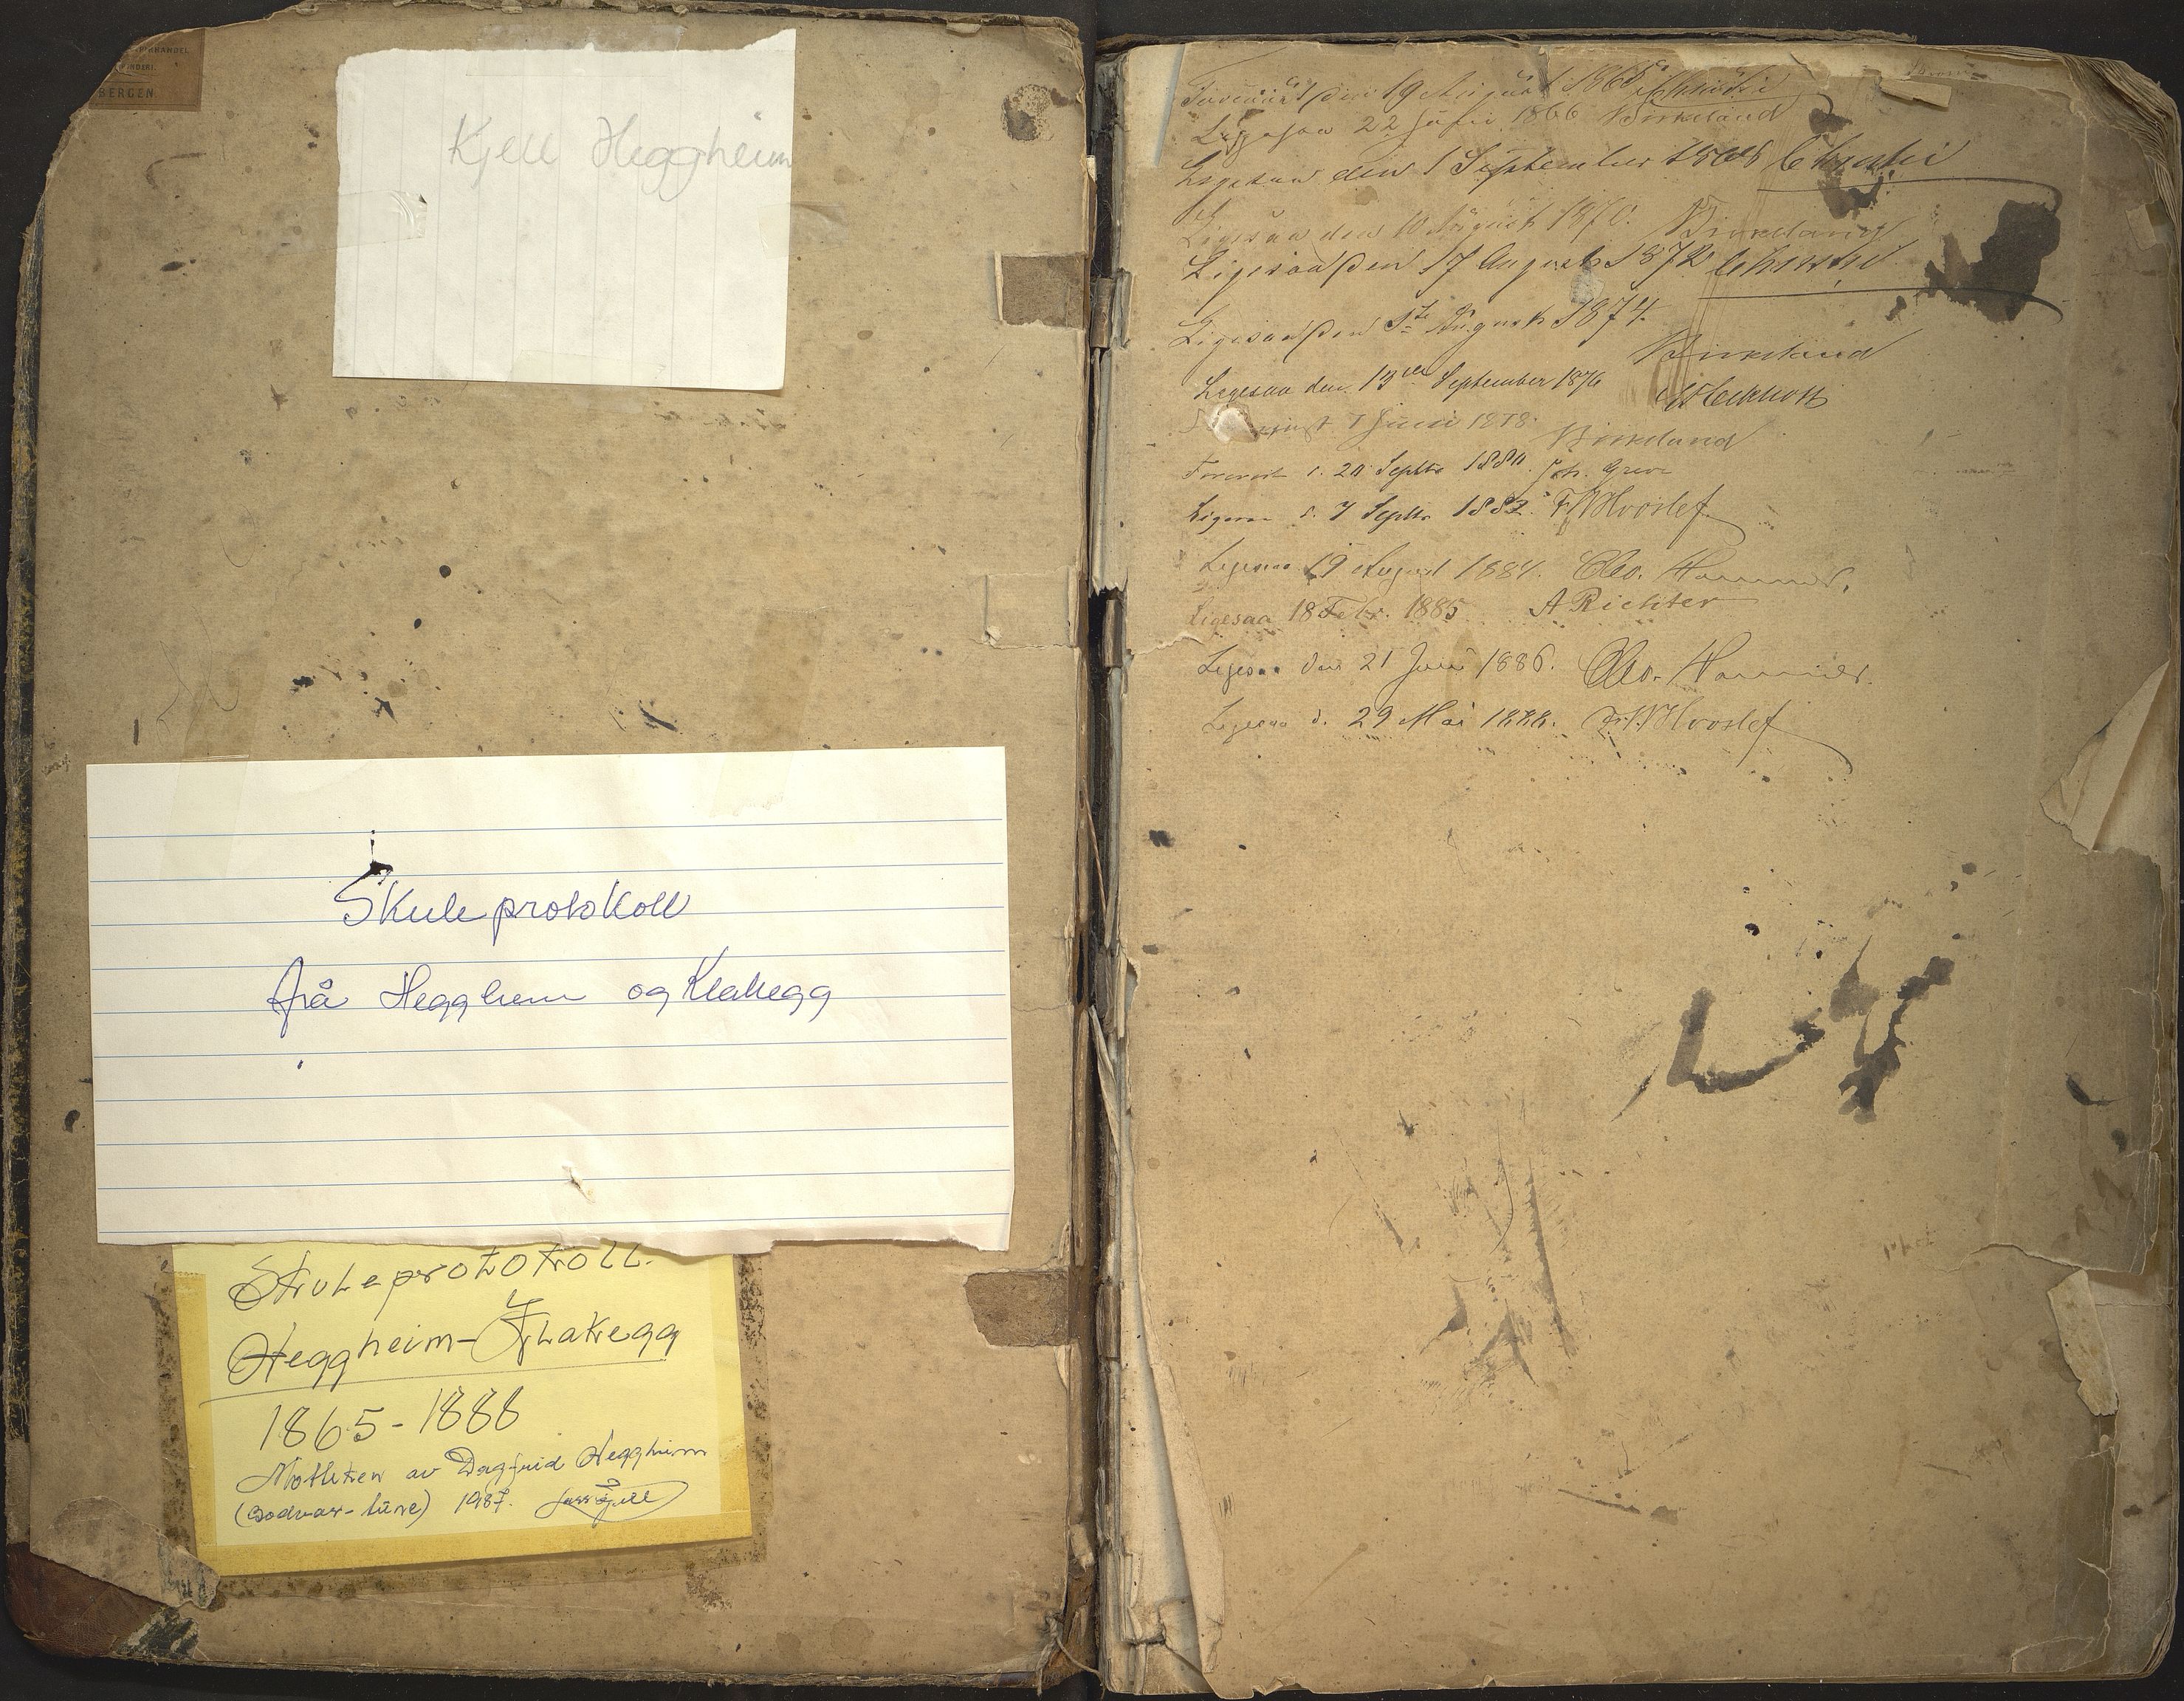 BERGEN
Kjell Heggheim
Skuleprotokoll
frå Heggheim og Klakegg
Skuleprotokoll.
Heggheim-Klakegg
1865-1888
Motteken av Dagfrid Heggheim
(Bodvar-tune) 1987.
Foreviist den 19 August 1865 Christie
Ligesaa 22 Juni 1866 Birkeland
Ligesaa den 1 September 1868 Christie
Ligesaa den 10 August 1870. Birkeland
Ligesaa den 17 August 1872 Christie
Ligesaa den August 1874.
Birkeland
Ligesaa den 13 September 1876
7 Juni 1878. Birkeland
Forevist d. 20 Septbr 1880. Joh. Greve
Ligesaa d. 7 Septbr 1882. Hvoslef
Ligesaa 19 August 1884. Chr. Hammer.
Ligesaa 18 Febr. 1885 A Richter
Ligesaa den 21 Juni 1886. Chr. Hammer.
Ligesaa d. 29 Mai 1888. Hvoslef